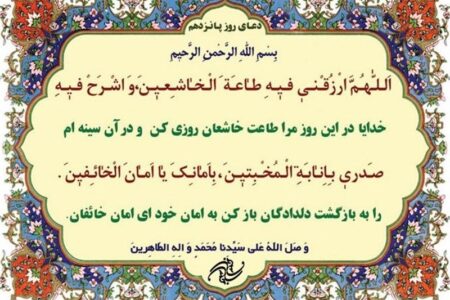 دعای روز پانزدهم
بِسْمِ اللهِ الرَّحْمنِ الرَّحیمِ
اَللّهُمَّ ارْزُقْنی فیهِ طاعَةَ الْخاشِعینَ،وَ اشْرَحْ فیهِ
خدایا در این روز مرا طاعت خاشعان روزی کن و در آن سینه ام
صَدری بِاِنابَةِ الْمُخْبِتینَ،بِاَمانِکَ یا اَمانَ الْخائِفینَ.
را به بازگشت دلدادگان باز کن به امان خود ای امان خائفان.
وَ صَلَ اللهُ عَلی سَیِّدنا مُحَمَدٍ وَ الِهِ الطّاهِرینَ